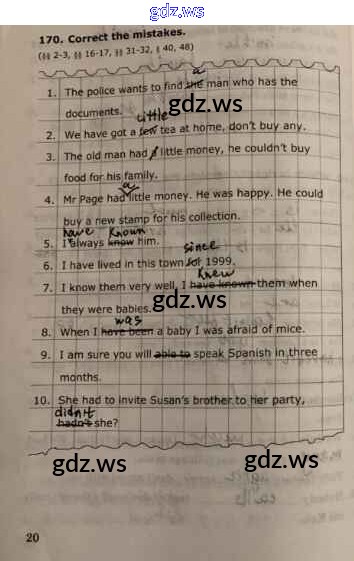 gdz.ws
170. Correct the mistakes.
(§§ 2-3, §§ 16-17, §§ 31-32, § 40, 48)
a
1. The police wants to find the man who has the
documents.
little
2. We have got a few tea at home, don't buy any.
3. The old man had a little money, he couldn't buy
food for his family.
a
4. Mr Page had little money. He was happy. He could
buy a new stamp for his collection.
have known
5. I always know him.
since
6. I have lived in this town for 1999.
knew
7. I know them very well, I have known them when
they were babies.
was
8. When I have been a baby I was afraid of mice.
9. I am sure you will able to speak Spanish in three
months.
10. She had to invite Susan's brother to her party,
didn't
hadn't she?
gdz.ws
gdz.ws
gdz.ws
gdz.ws
gdz.ws
20
gdz.ws